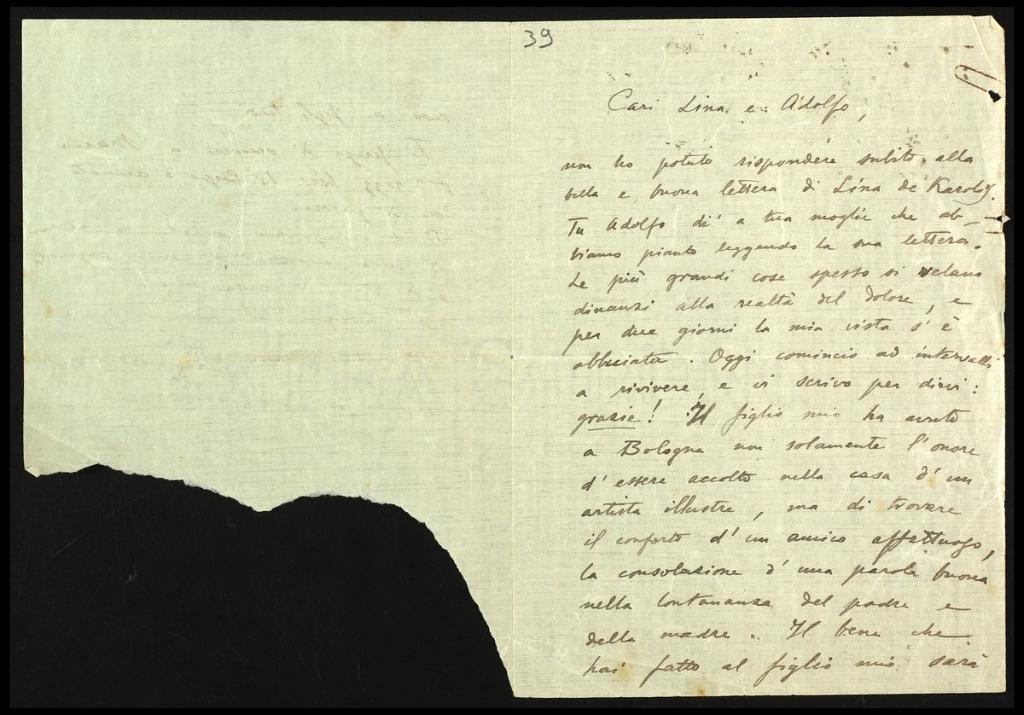 39
Cari Lina e Adolfo,
non ho potuto rispondere subito alla
bella e buona lettera di Lina de Karolis.
Tu Adolfo di' a tua moglie che ab-
biamo pianto leggendo la sua lettera.
Le più grandi cose spesso si velano
dinanzi alla realtà del dolore, e
per due giorni la mia vista s'è
abbuiata. Oggi comincio ad intervalli
a rivivere, e vi scrivo per dirvi:
grazie! Il figlio mio ha avuto
a Bologna non solamente l'onore
d'essere accolto nella casa d'un
artista illustre, ma di trovare
il conforto d'un amico affettuoso,
la consolazione d'una parola buona
nella lontananza del padre e
della madre. Il bene che
hai fatto al figlio mio sarà